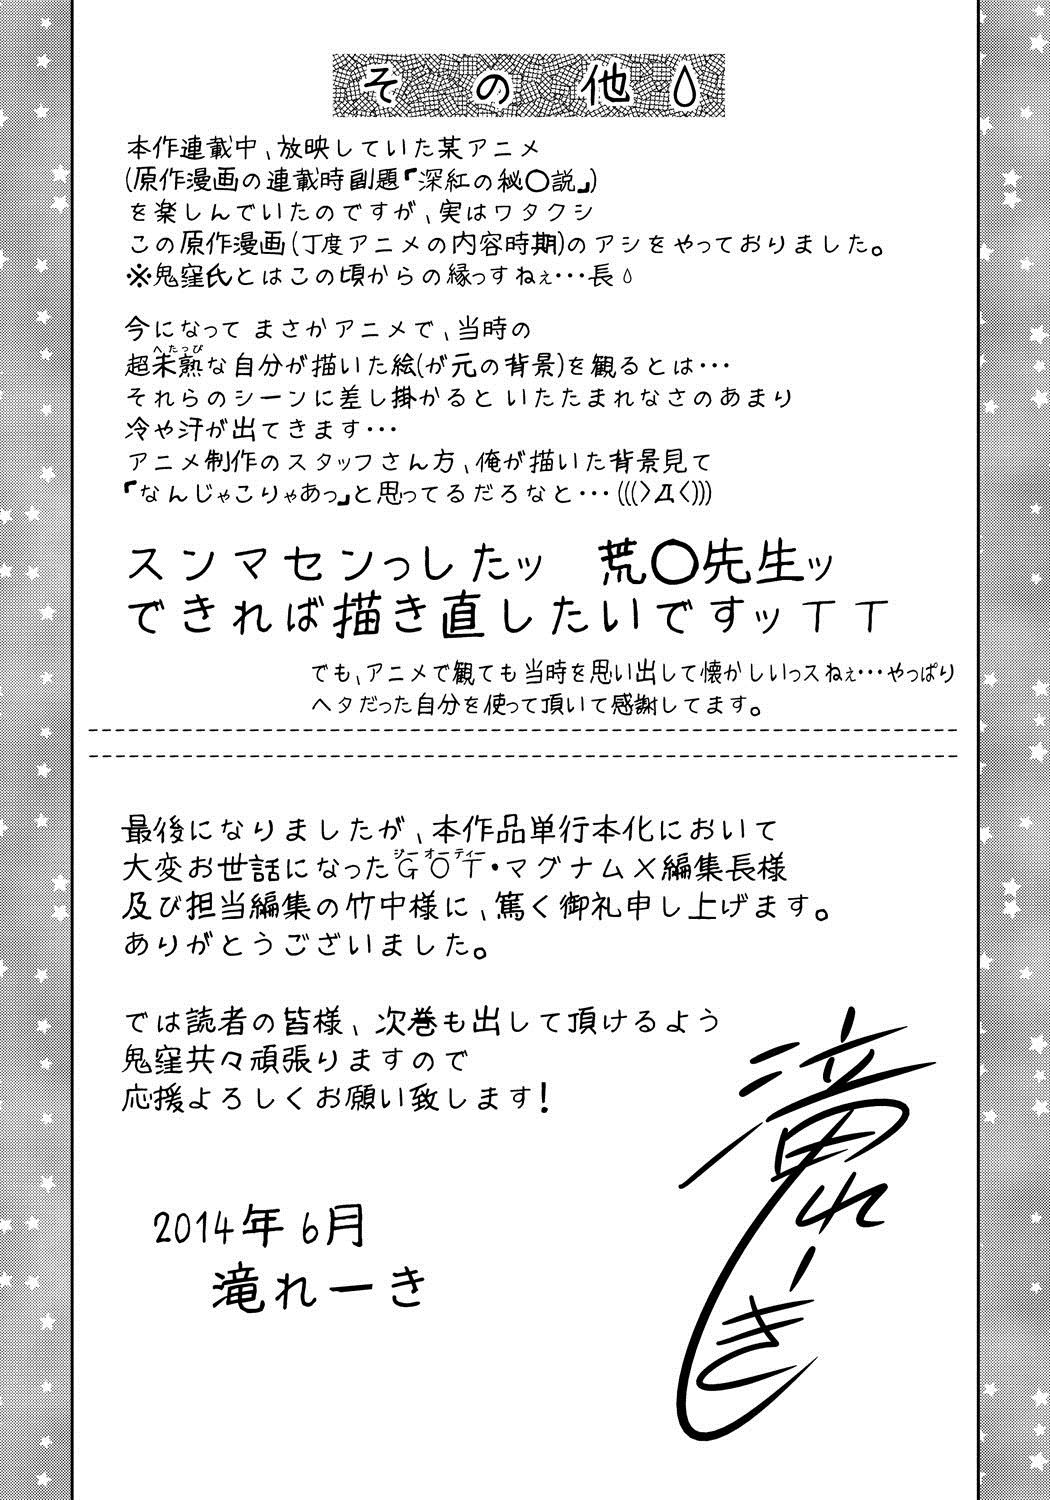 その他
本作連載中、放映していた某アニメ
(原作漫画の連載時副題『深紅の秘〇説』)
を楽しんでいたのですが、実はワタクシ
この原作漫画(丁度アニメの内容時期)のアシをやっておりました。
※鬼窪氏とはこの頃からの縁っすねぇ・・・長
今になって まさかアニメで、当時の
へたっぴ
超未熟な自分が描いた絵(が元の背景)を観るとは・・・
それらのシーンに差し掛かると いたたまれなさのあまり
冷や汗が出てきます・・・
アニメ制作のスタッフさん方、俺が描いた背景見て
『なんじゃこりゃあっ』と思ってるだろなと・・・(((〉Д〈)))
スンマセンっしたッ 荒〇先生ッ
できれば描き直したいですッTT
でも、アニメで観ても当時を思い出して懐かしいっスねぇ・・・やっぱり
ヘタだった自分を使って頂いて感謝してます。
最後になりましたが、本作品単行本化において
ジーオーティー
大変お世話になったGOT・マグナムX編集長様
及び担当編集の竹中様に、篤く御礼申し上げます。
ありがとうございました。
では読者の皆様、次巻も出して頂けるよう
鬼窪共々頑張りますので
応援よろしくお願い致します!
2014年6月
滝れーき
滝れーき